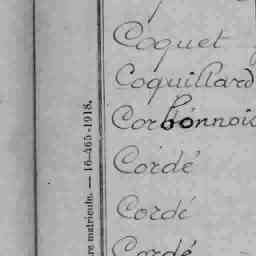 Coquet
Coquillard
Corbonnois
Cordé
Cordé
Cordé
re matricule. — 16-465-1918.